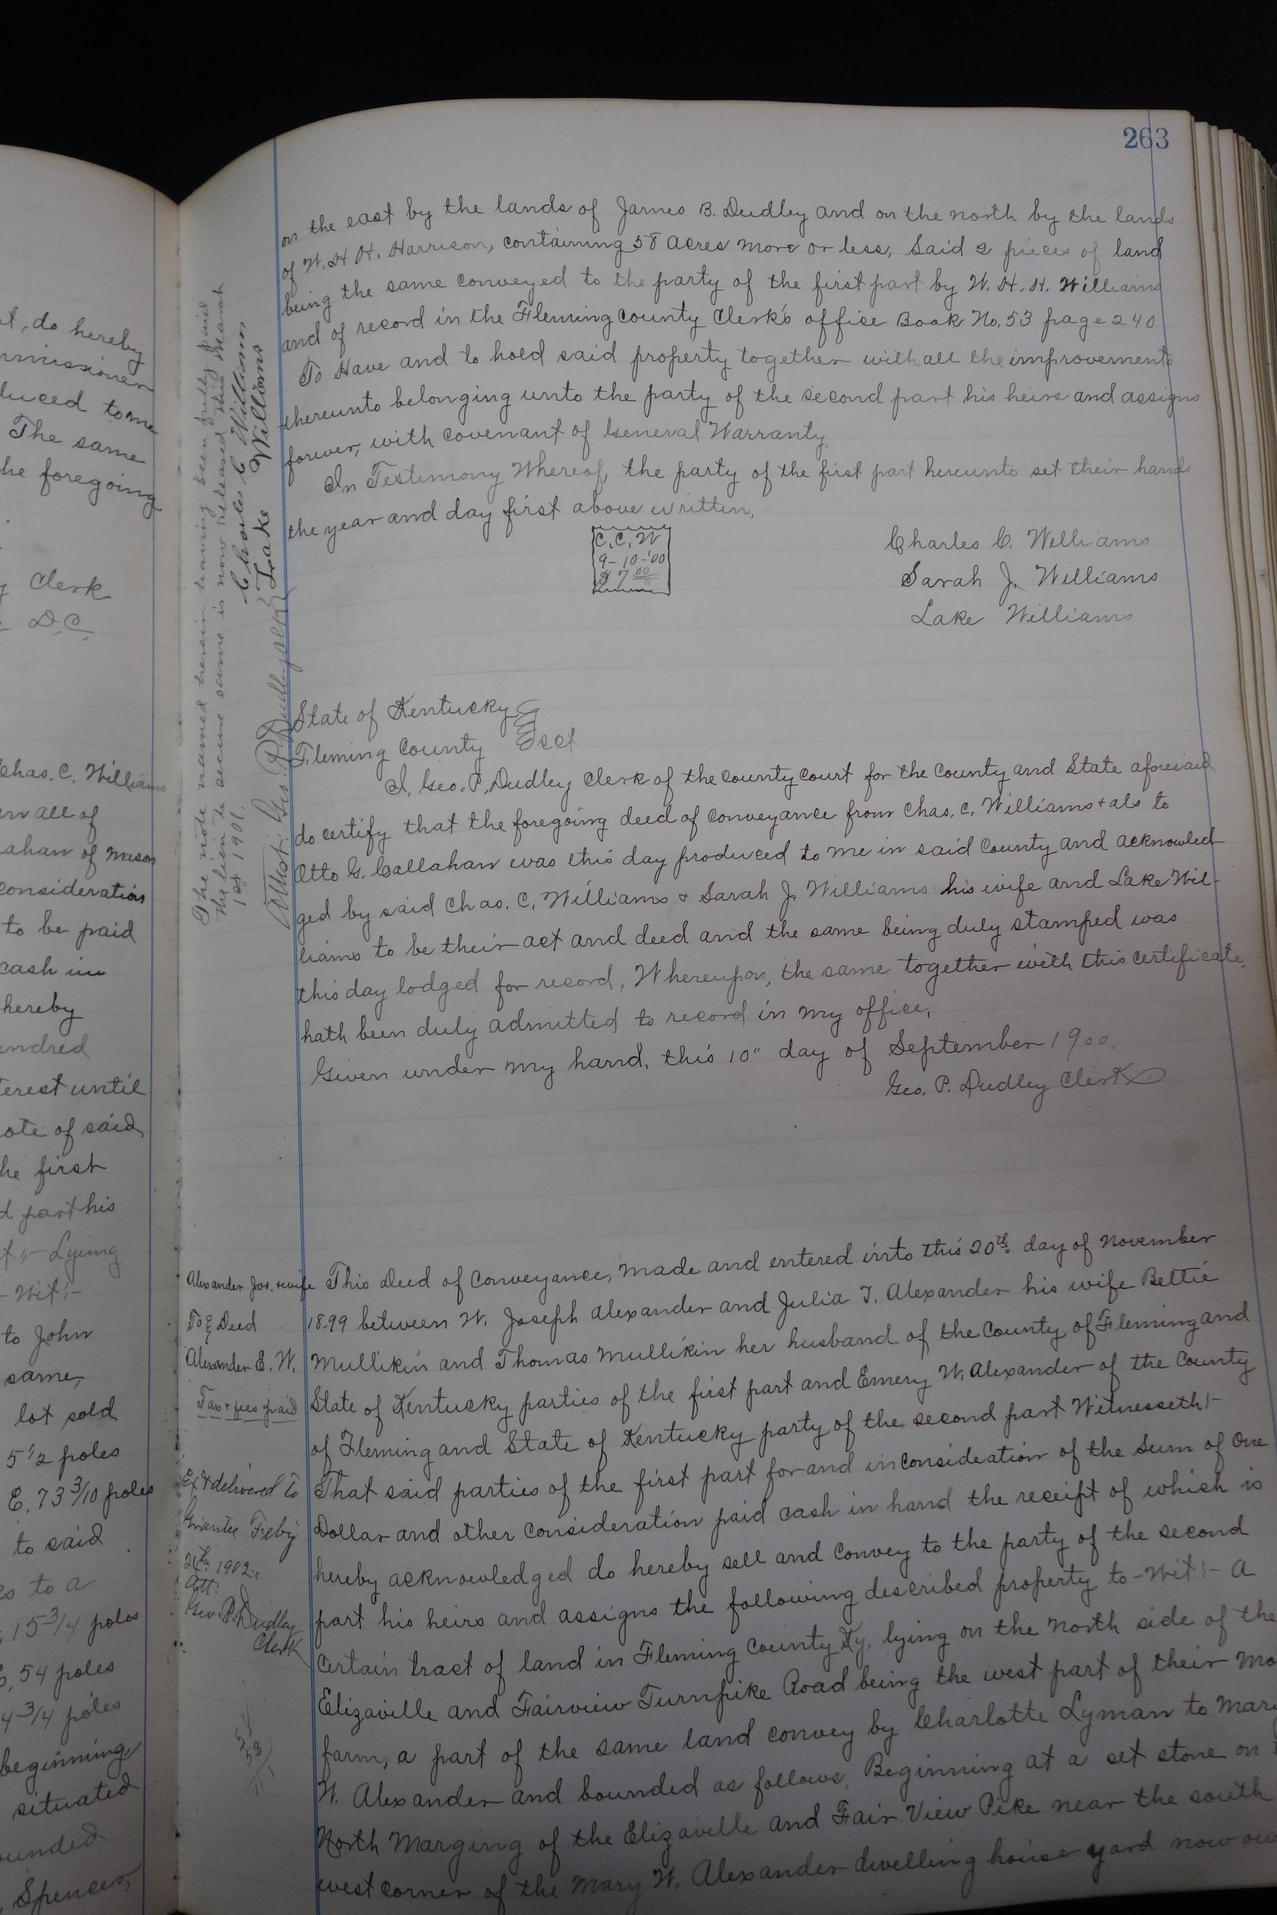 t, do hereby
mmissioner
duced to me
The same
he foregoing
Clerk
D.C.
Chas. C. Williams
all of
ahan of Mason
consideration
to be paid
cash in
hereby
undred
terest until
ote of said
he first
d part his
Lying
Wit:-
to John
same,
lot sold
5 1/2 poles
E. 73 3/10 poles
to said
es to a
15 3/4 poles
54 poles
4 3/4 poles
beginning
situated
ounded
Spencer,
263
The note named herein having been fully paid
the lien to secure same is now released this March
1st 1901.
Charles C. Williams
Lake Williams
Attest: Geo. P. Dudley Clerk
on the east by the lands of James B. Dudley and on the north by the lands
of W. H. H. Harrison, containing 58 acres more or less, Said 2 pieces of land
being the same conveyed to the party of the first part by W. H. H. Williams
and of record in the Fleming County Clerk's office Book No. 53 page 240
To Have and to hold said property together with all the improvements
thereunto belonging unto the party of the second part his heirs and assigns
forever, with covenant of General Warranty
In Testimony Whereof, the party of the first part hereunto set their hands
the year and day first above written,
C. C. W
9-10-'00
$7 00
Charles C. Williams
Sarah J. Williams
Lake Williams
State of Kentucky
Fleming County Sct
I, Geo. P. Dudley Clerk of the county court for the County and State aforesaid
do certify that the foregoing deed of conveyance from Chas. C. Williams + als to
Otto G. Callahan was this day produced to me in said County and acknowled
ged by said Chas. C. Williams & Sarah J. Williams his wife and Lake Wil-
liams to be their act and deed and the same being duly stamped was
this day lodged for record, Whereupon, the same together with this certificate,
hath been duly admitted to record in my office,
Given under my hand, this 10" day of September 1900,
Geo. P. Dudley Clerk
Alexander Jos. + wife
To } Deed
Alexander E. W.
Tax + fees paid
Ex + delivered to
Grantee Feby
1902.
Att:
Geo. P. Dudley
Clerk
This Deed of Conveyance, made and entered into this 20th day of November
1899 between W. Joseph Alexander and Julia T. Alexander his wife Bettie
Mullikin and Thomas Mullikin her husband of the County of Fleming and
State of Kentucky parties of the first part and Emery W. Alexander of the County
of Fleming and State of Kentucky party of the second part Witnesseth:-
That said parties of the first part for and in consideration of the sum of One
Dollar and other consideration paid cash in hand the receipt of which is
hereby acknowledged do hereby sell and convey to the party of the second
part his heirs and assigns the following described property to-Wit:- A
certain tract of land in Fleming County Ky. lying on the North side of the
Elizaville and Fairview Turnpike Road being the west part of their
farm, a part of the same land convey by Charlotte Lyman to Mary
W. Alexander and bounded as follows, Beginning at a set stone on
North Marging of the Elizaville and Fair View Pike near the south
west corner of the Mary W. Alexander dwelling house yard now